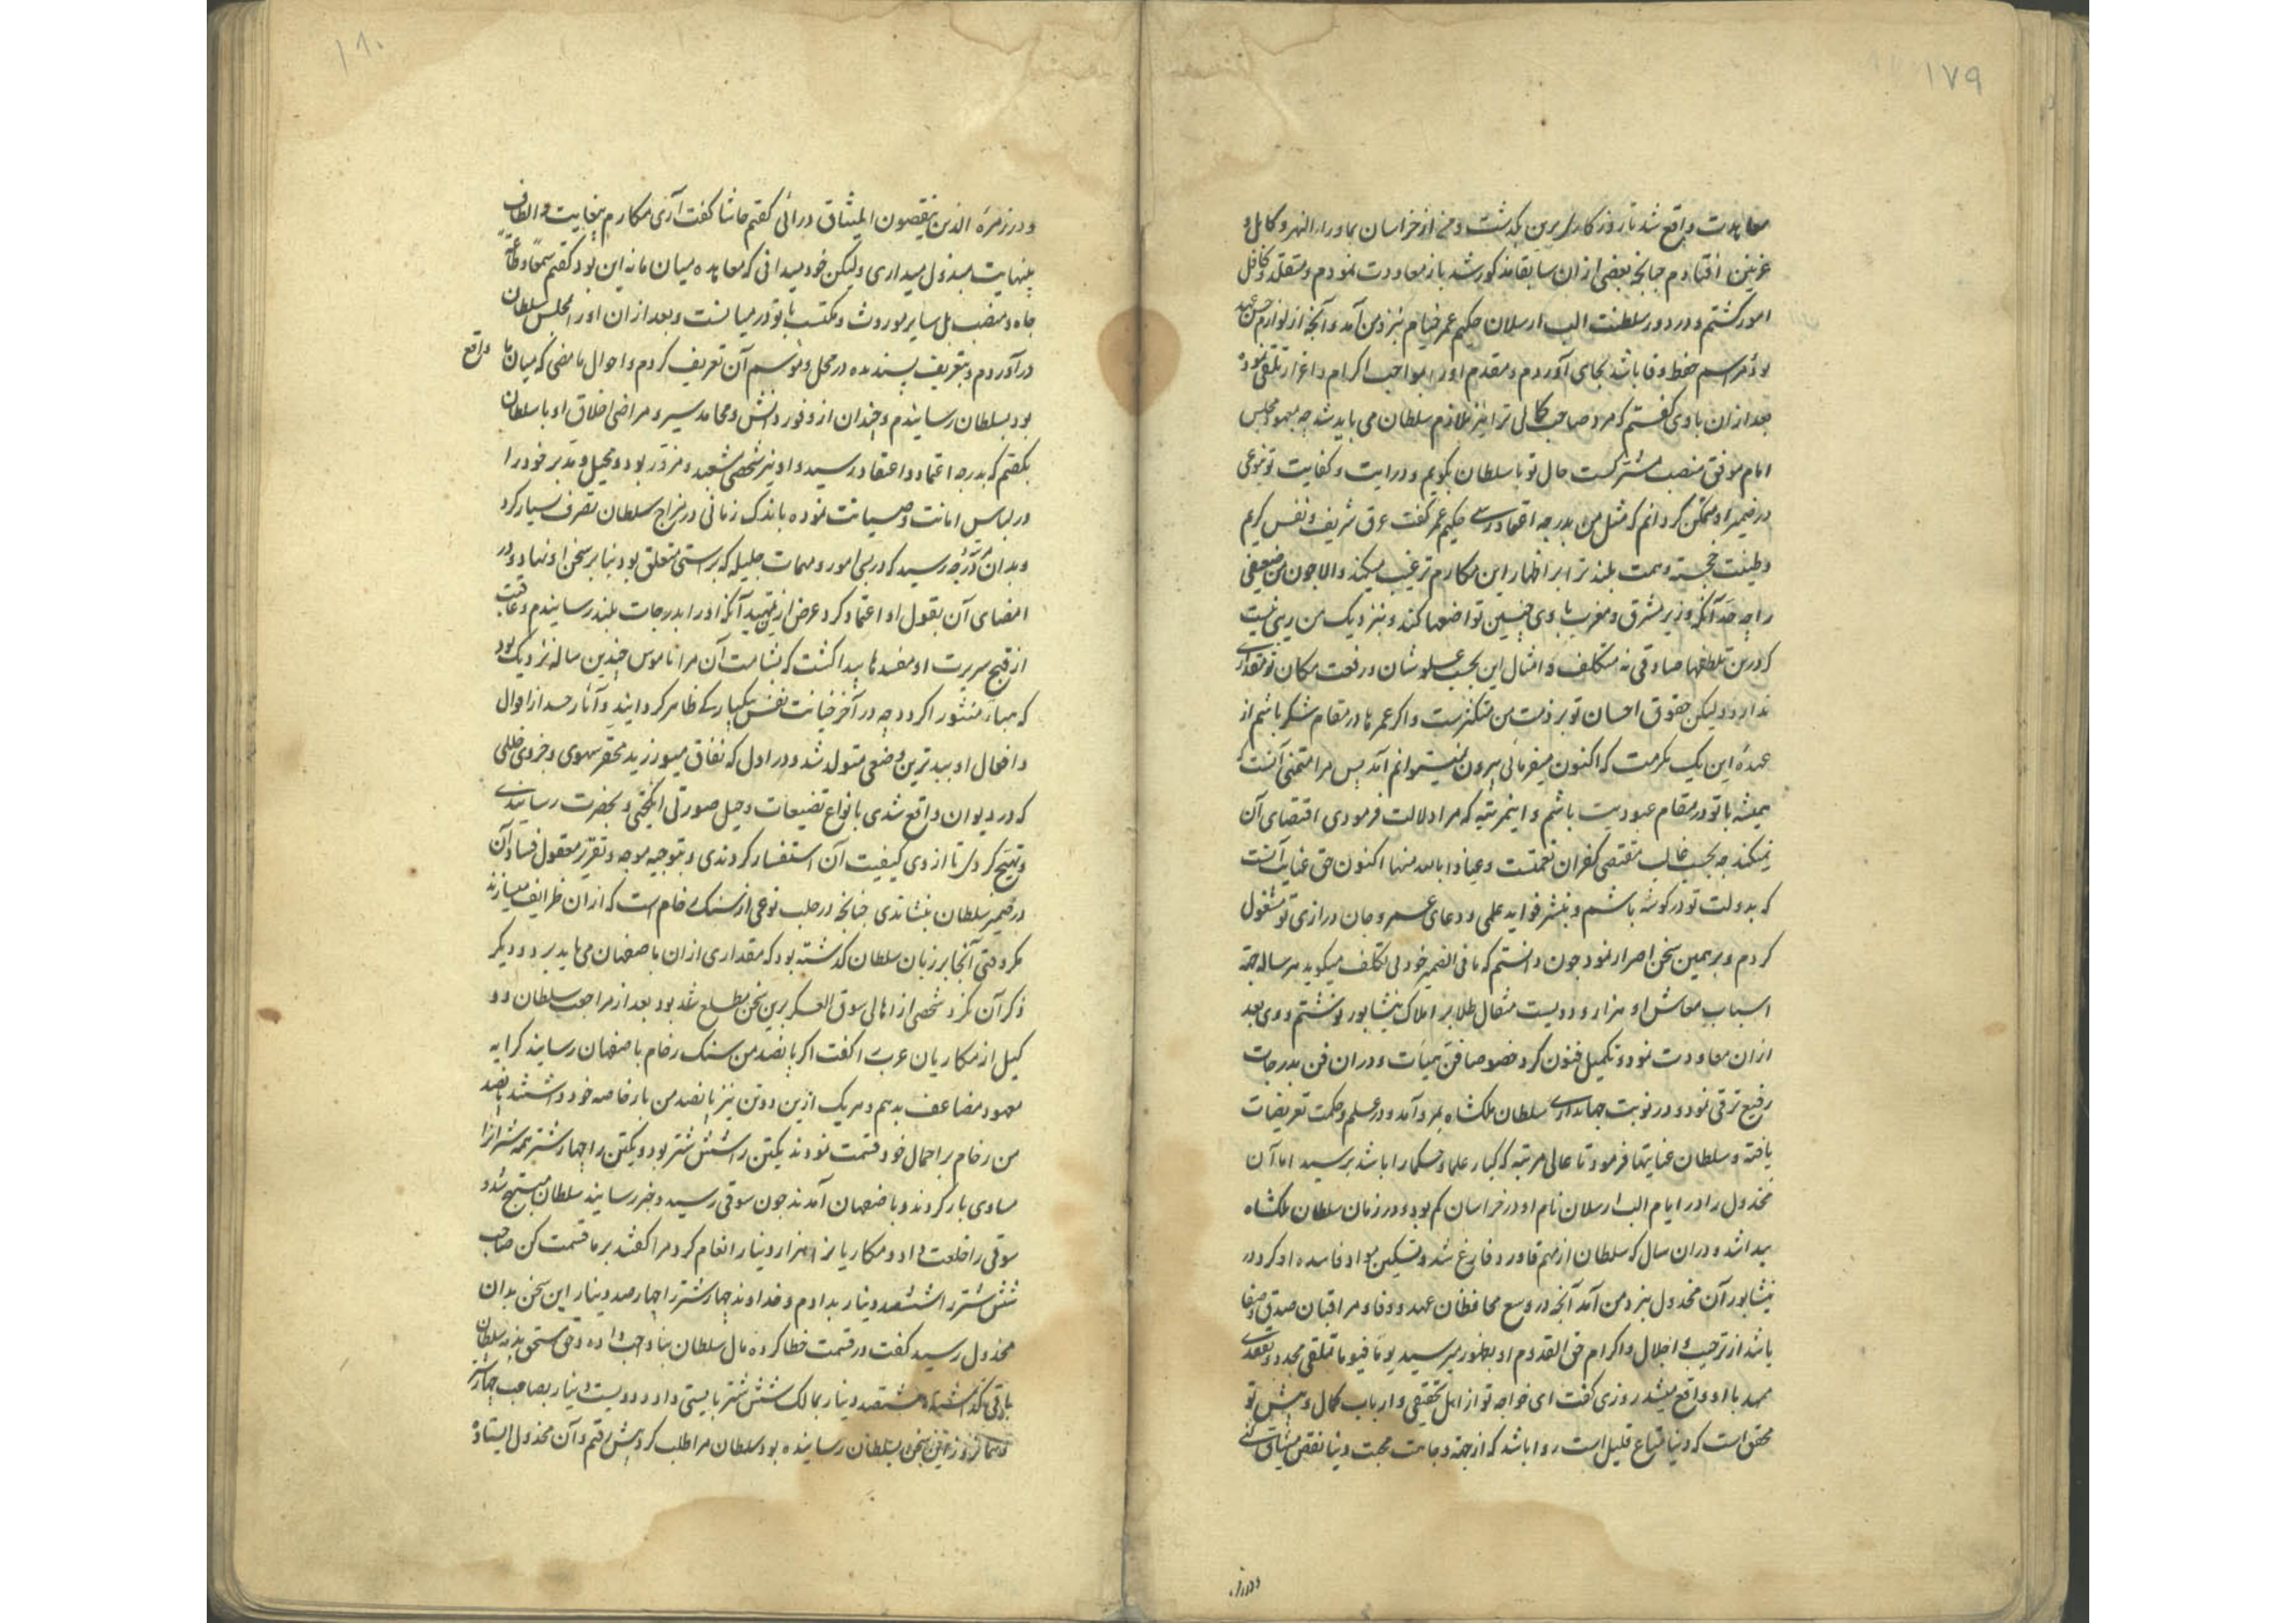 ۱۷۹
معاهدت واقع شد تا روزگار برین بگذشت و من از خراسان بماوراء النهر و کابل و
غزنین افتادم چنانچه بعضی از ان سابقا مذکور شد باز معاودت نمودم و متقلد و کافل
امور گشتم و در دور سلطنت الب ارسلان حکیم عمر خیام بنزد من آمد و آنچه از لوازم حسن عهد
و مراسم حفظ وفا باشد بجای آوردم و مقدم او را بمواجب اکرام و اعزاز تلقی نموده
بعد ازان با وی گفتم که مرد صاحب کمالی ترا نیز ملازم سلطان می باید شد چه بمعهود مجلس
امام موفق منصب مشترکست حال تو با سلطان بگویم و درایت و کفایت تو بنوعی
در ضمیر او متمکن گردانم که مثل من بدرجه اعتماد رسی حکیم عمر گفت عرق شریف و نفس کریم
و طینت خجسته و همت بلند ترا بر اظهار این مکارم ترغیب میکند و الا چون من ضعیفی
را چه حد آنکه وزیر مشرق و مغرب با وی چنین تواضعها کند و بنزدیک من ریبی نیست
که درین تلطفها صادقی نه متکلف و امثال این بجسب علو شان و رفعت مکان تو مقداری
ندارد و لیکن حقوق احسان تو بر ذمت من متکثرست و اگر عمرها در مقام شکر باشم از
عهدهٔ این یک مکرمت که اکنون میفرمائی بیرون نمیتوانم آمد پس مرا متمنی آنست که
همیشه با تو در مقام عبودیت باشم و اینمرتبه که مرا دلالت فرمودی اقتضای آن
نمیکند چه بحسب غالب مقتضی کفران نعمتست و عیاذا بالله منها اکنون حق عنایت آنست
که بدولت تو در گوشه باشم و بنشر فواید علمی و دعای عمر و جان درازی تو مشغول
گردم و بر همین سخن اصرار نمود چون دانستم که ما فی الضمیر خود بی تکلف میگوید هر ساله جهة
اسباب معاش او هزار و دویست مثقال طلا بر املاک نیشابور نوشتم و وی بعد
ازان معاودت نمود و تکمیل فنون کرد خصوصا فن هیأت و دران فن بدرجات
رفیع ترقی نمود و در نوبت جهانداری سلطان ملکشاه بمرو آمد و در علم و حکمت تعریفات
یافته و سلطان عنایتها فرمود تا عالی مرتبه که کبار علما و حکما را باشد برسید اما آن
مخذول را در ایام الب ارسلان نام او در خراسان کم بود و در زمان سلطان ملکشاه
پیدا شد و دران سال که سلطان از مهم قاورد فارغ شد و تسکین مواد فاسده او کرد در
نیشابور آن مخذول بنزد من آمد آنچه در وسع محافظان عهد و وفا و مراقبان صدق و صفا
باشد از ترحیب و اجلال و اکرام حق القدوم او بظهور میرسید یوما فیوما تلقی مجدد و تفقدی
ممهد با او واقع میشد روزی گفت ای خواجه تو از اهل تحقیقی و ارباب کمال و پیش تو
محقق است که دنیا متاع قلیل است روا باشد که از جهة وجاهت محبت دنیا نقض میثاق کنی
و در زمرهٔ
۱۸۰
و در زمرهٔ الذین ینقضون المیثاق درائی گفتم حاشا گفت آری مکارم بیغایت و الطاف
بینهایت مبذول میداری و لیکن خود میدانی که معاهده میان ما نه این بود گفتم سمعا و طاعة
جاه و منصب بل سایر موروث و مکتسب با تو در میانست و بعد ازان او را بمجلس سلطان
درآوردم و بتعریف پسندیده در محل و موسم آن تعریف کردم و احوال ماضی که میان ما واقع
بود بسلطان رسانیدم و چندان از وفور دانش و محامد سیر و مراضی اخلاق او با سلطان
بگفتم که بدرجه اعتماد و اعتقاد رسید و او نیز شخصی مشعبد و مزور بود و بحیل و تدبر خود را
در لباس امانت و صیانت نموده باندک زمانی در مزاج سلطان تصرف بسیار کرد
و بدان درجه رسید که در بسی امور و مهمات جلیله که براستی متعلق بود بنا بر سخن او نهاد و در
امضای آن بقول او اعتماد کرد غرض ازین تمهید آنکه او را بدرجات بلند رسانیدم و عاقبت
از قبح سریرت او مفسدها پیدا گشت که بشامت آن مرا ناموس چندین ساله نزدیک بود
که هباء منثورا گردد چه در آخر خیانت نفس بیکبارگی ظاهر گردانید و آثار حسد از اقوال
و افعال او ببدترین وضعی متولد شد و در اول که نفاق میورزید بمحقر سهوی و جزوی خللی
که در دیوان واقع شدی بانواع تضییعات و حیل صورتی انگیختی و بحضرت رسانیدی
و تهییج کردی تا از وی کیفیت آن استفسار کردندی و بتوجیه موجه و تقریر معقول فساد آن
در ضمیر سلطان بنشاندی چنانچه در حلب نوعی از سنگ رخام است که ازان ظرایف میسازند
مگر وقتی آنجا بر زبان سلطان گذشته بود که مقداری ازان باصفهان می باید برد و دیگر
ذکر آن نکرد شخصی از اهالی سوق العسکر برین سخن مطلع شده بود بعد از مراجعت سلطان دو
کیل از مکاریان عرب را گفت اگر پانصد من سنک رخام باصفهان رسانید کرایه
معهود مضاعف بدهم و هر یک ازین دو تن نیز پانصد من بار خاصه خود داشتند پانصد
من رخام بر احمال خود قسمت نمودند یکتن را شش شتر بود و یکتن را چهار شتر همه شتران را
مساوی بار کردند و باصفهان آمدند چون سوقی رسید و خبر رسانید سلطان مبتهج شد و
سوقی را خلعت داد و مکاریان را هزار دینار انعام کرد مرا گفتند بر ما قسمت کن صاحب
شش شتر را ششصد دینار بدادم و خداوند چهار شتر را چهارصد دینار این سخن بدان
مخذول رسید گفت در قسمت خطا کرده مال سلطان بنا واجب داده و حق مستحق بذمه سلطان
باقی گذاشته هشتصد دینار بمالک شش شتر بایستی داد و دویست دینار بصاحب چهار شتر
و همانروز این سخن بسلطان رسانیده بود سلطان مرا طلب کرد پیش رفتم و آن مخذول ایستاده